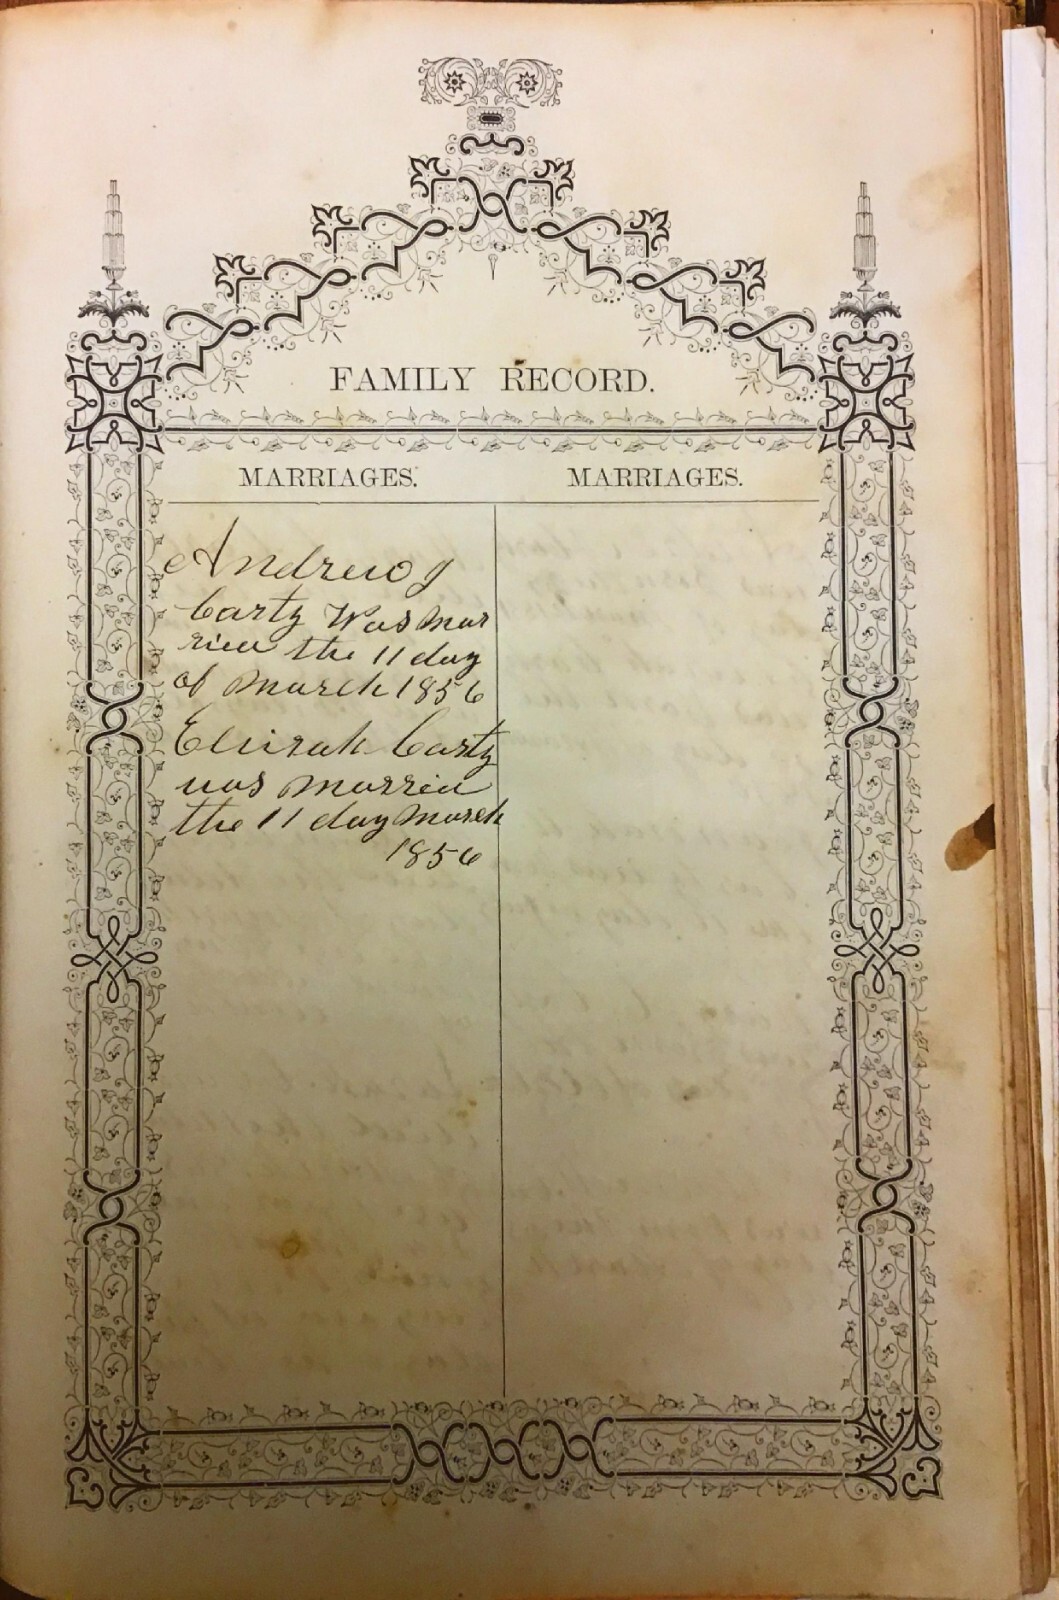 FAMILY RECORD.
MARRIAGES.
MARRIAGES.
Andrew J
Carty Was mar
ried the 11 day
of March 1856
Elizah Carty
was married
the 11 day March
1856